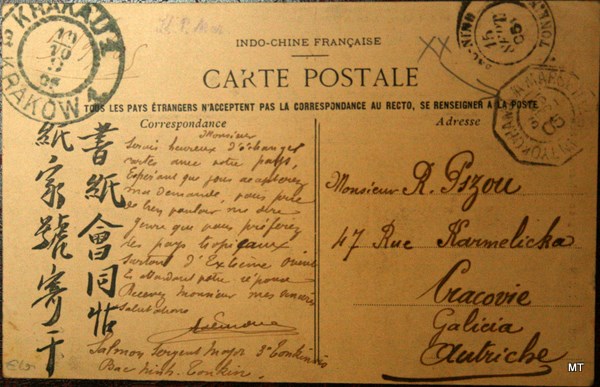 KRAKAU 2
KRAKÓW 2
INDO-CHINE FRANÇAISE
XX
CARTE POSTALE
TOUS LES PAYS ÉTRANGERS N'ACCEPTENT PAS LA CORRESPONDANCE AU RECTO, SE RENSEIGNER A LA POSTE
Correspondance
Monsieur
Serais heureux d'échanger
cartes avec votre pays,
Espérant que vous accepterez
ma demande, vous prie
de bien vouloir me dire
genre que vous préférez
des pays tropicaux
surtout d'Extrême Orient
En attendant votre réponse
Recevez Monsieur mes
salutations
Salmon Sergent Major 3e Tonkinois
Bac Ninh Tonkin
書紙會同帖
紙家號寄干
Adresse
Monsieur R. Pszou
47 Rue Karmelicka
Cracovie
Galicia
Autriche
MT